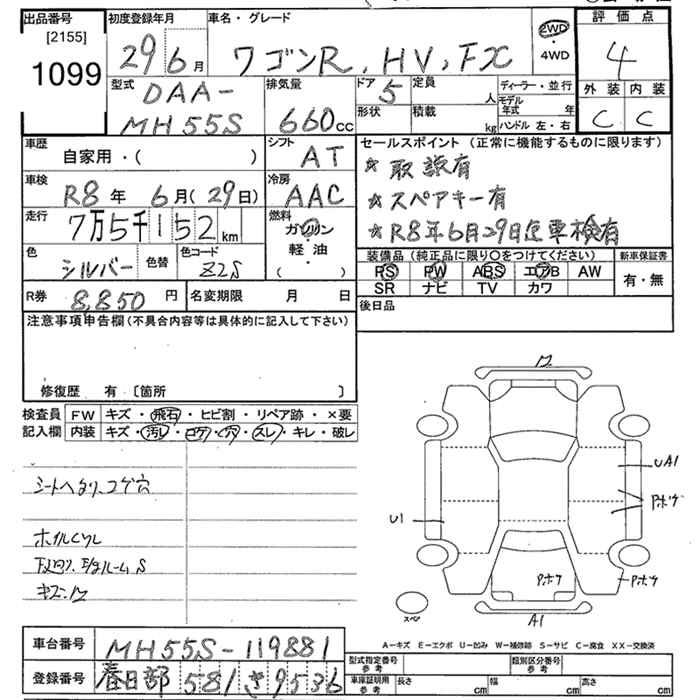 出品番号
[2155]
1099
初度登録年月
29 6月
車名・グレード
ワゴンR, HV, FX
2WD
・
4WD
評価点
4
外装 内装
C C
型式
DAA-
MH55S
排気量
660cc
ドア 5
定員 人
形状
積載 kg
ディーラー・並行
モデル年式 年
ハンドル 左・右
車歴
自家用・( )
シフト
AT
車検
R8年 6月(29日)
冷房
AAC
走行
7万5千152km
燃料
ガソリン
軽・油
( ・ )
色
シルバー
色替
色コード
Z2S
R券 8,850円
名変期限 月 日
セールスポイント (正常に機能するものに限ります)
☆取説有
☆スペアキー有
☆R8年6月29日迄車検有
装備品 (純正品に限り〇をつけてください)
PS PW ABS エアB AW
SR ナビ TV カワ
新車保証書
有・無
後日品
注意事項申告欄(不具合内容等は具体的に記入して下さい)
修復歴 有 〔箇所 〕
検査員記入欄
FW キズ・飛石・ヒビ割・リペア跡・×要
内装 キズ・汚レ・コゲ・穴・スレ・キレ・破レ
シートヘタリ、コゲ穴
ホイルCリレ
キズ・ワ
ワ
UA1
Pホゲ
U1
Pホゲ
Pホゲ
スペア
A1
A－キズ E－エクボ U－凹み W－補修跡 S－サビ C－腐食 XX－交換済
車台番号 MH55S-119881
登録番号 春日部 581 さ 9536
型式指定番号 参考
類別区分番号 参考
車庫証明用 参考
長さ cm
幅 cm
高さ cm